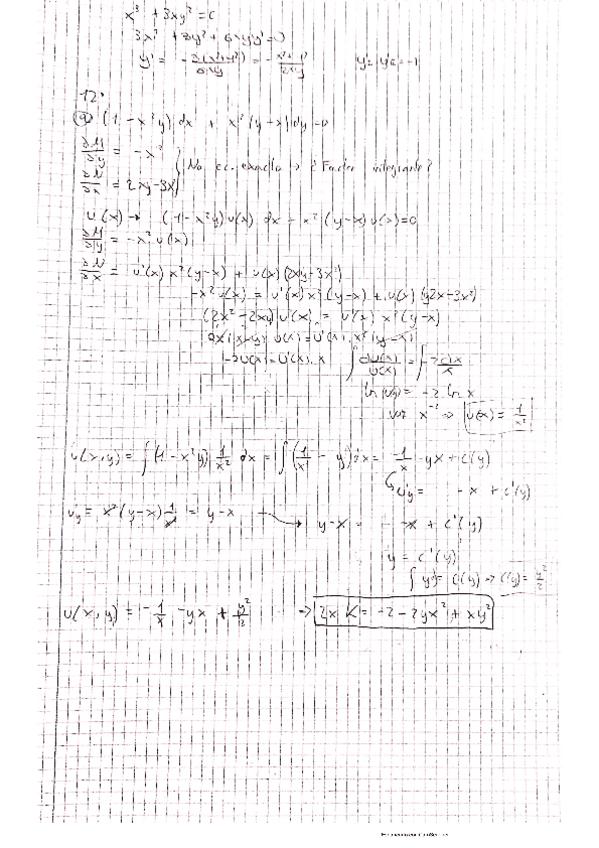 x³ + 3xy² = C
3x² + 3y² + 6xyy' = 0
12.
a) (1 - x²y) dx + x²(y-x) dy = 0
∂M/∂y = -x²
∂N/∂x = 2xy - 3x²
No ec. exacta → ¿Factor integrante?
u(x) → (1-x²y) u(x) dx + x²(y-x) u(x) = 0
∂M/∂y = -x² u(x)
∂N/∂x = u'(x) x²(y-x) + u(x) (2xy-3x²)
-x² u(x) = u'(x) x²(y-x) + u(x) (y2x-3x²)
(2x² - 2xy) u(x) = u'(x) x²(y-x)
-2u(x) = u'(x) . x ∫ du(x)/u(x) = ∫ -2dx/x
ln u(x) = -2 ln x
x⁻² ⇒ u(x) = 1/x²
u(x,y) = ∫ (1-x²y) 1/x² dx = ∫ (1/x² - y) dx = -1/x - yx + C(y)
u'y = -x + c'(y)
uy = x²(y-x) 1/x² = y-x → y-x = -x + c'(y)
y = c'(y)
∫ y = C(y) → C(y) = y²/2
u(x,y) = -1/x - yx + y²/2 ⇒ 2x K = -2 - 2yx² + xy²